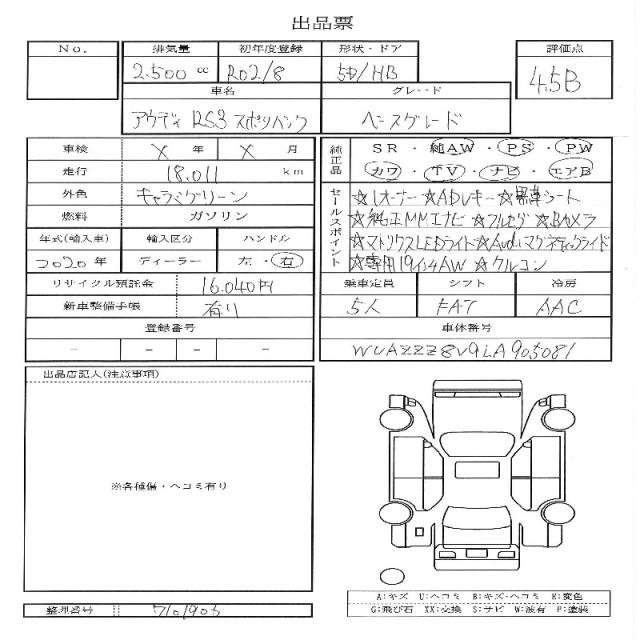 出品票
No. 排気量 初年度登録 形状・ドア 評価点
2.500 cc R02/8 5D/HB 4.5B
車名 グレード
アウディ RS3 スポーツバック ベースグレード
車検 X 年 X 月
走行 18.011 km
外色 キャラミグリーン
燃料 ガソリン
年式(輸入車) 輸入区分 ハンドル
2020年 ディーラー 左・右
リサイクル預託金 16.040円
新車整備手帳 有り
登録番号
- - - -
純正品 SR・純AW・PS・PW
カワ・TV・ナビ・エアB
セールスポイント
☆1オーナー☆ADVキー☆黒革シート
☆純正MMIナビ ☆フルセグ ☆Bカメラ
☆マトリクスLEDライト☆Audiマグネティックライド
☆専用19インチAW ☆クルコン
乗車定員 シフト 冷房
5人 FAT AAC
車体番号
WUAZZZ8V9LA905081
出品店記入(注意事項)
※各種傷・ヘコミ有り
A:キズ U:ヘコミ B:キズ・ヘコミ K:変色
G:飛び石 XX:交換 S:サビ W:波有 P:塗装
整理番号 7101903